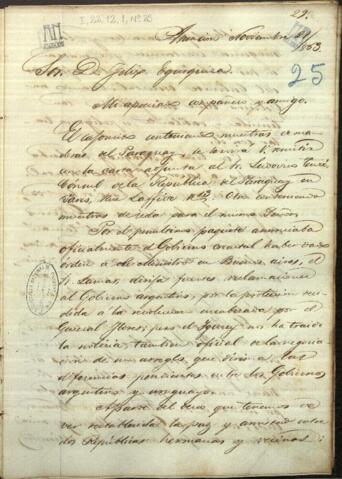 29.
I, 22, 12, 1, Nº 25
Asuncion Noviembre 21/863.
25
Sor. Dn. Felix Eguzquiza.
Mi apreciado compadre y amigo.
El cajoncito conteniendo muestras de ma-
deras del Paraguay, se servirá V. remitir
con la carta adjunta al Sr. Ludovico Tenré
Consul de la República del Paraguay en
Paris, Rue Laffitte Otro conteniendo
muestras de seda para el mismo Señor.
Por el penúltimo paquete anunciaba
oficialmente el Gobierno oriental haber dado
órden a su Ministro en Buenos aires, el
Sr. Lamas, dirija fuertes reclamaciones
al Gobierno argentino, por la proteccion ren-
dida a la revolucion encabezada por el
General Flores; pero el Igurey nos ha traido
la noticia tambien oficial de la negocia-
cion de un arreglo, que dirimia las
diferencias pendientes entre los Gobiernos
argentino y uruguayo.
Aparte del deseo que tenemos de
ver restablecida la paz y amistad entre
dos Repúblicas hermanas y vecinas;